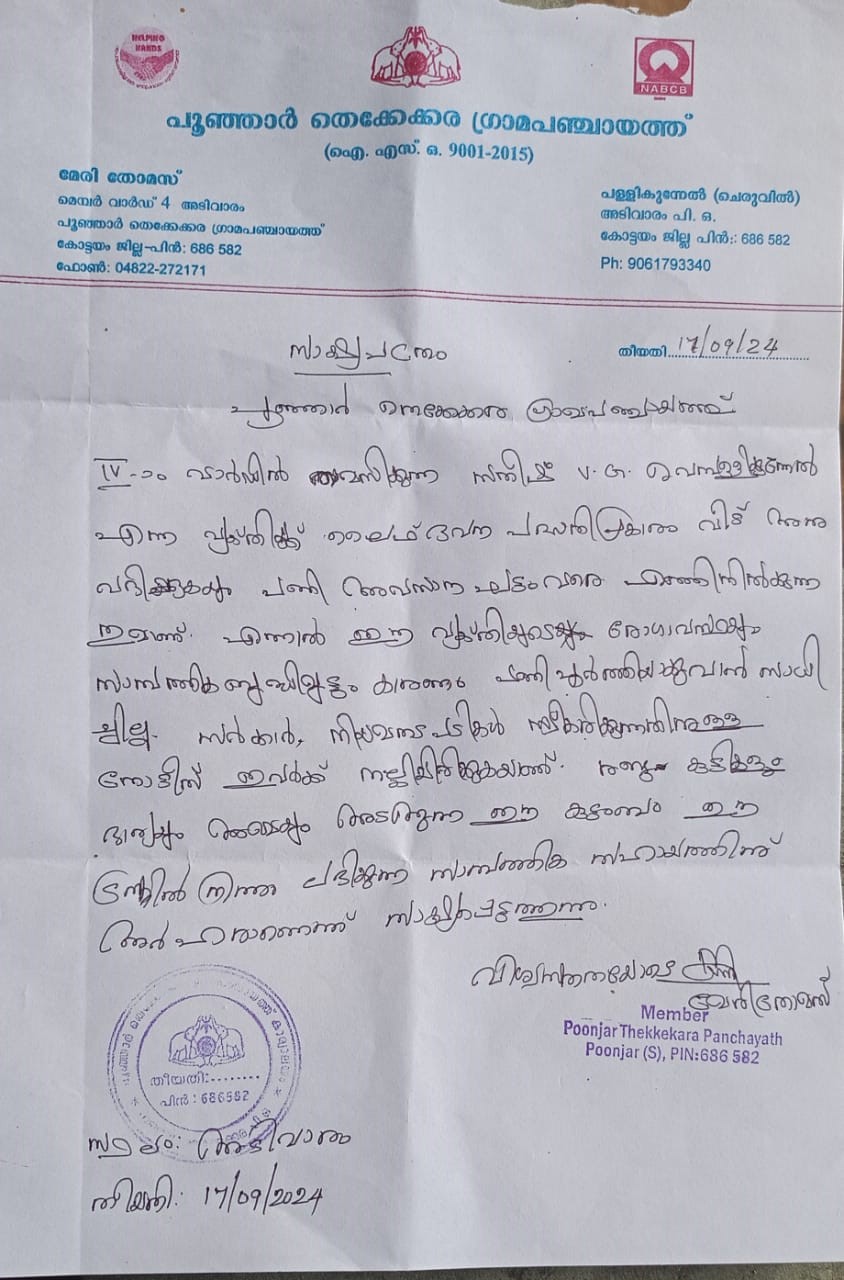 HELPING
HANDS
NABCB
പൂഞ്ഞാർ തെക്കേക്കര ഗ്രാമപഞ്ചായത്ത്
(ഐ. എസ്. ഒ. 9001-2015)
മേരി തോമസ്
മെമ്പർ വാർഡ് 4 അടിവാരം
പൂഞ്ഞാർ തെക്കേക്കര ഗ്രാമപഞ്ചായത്ത്
കോട്ടയം ജില്ല-പിൻ: 686 582
ഫോൺ: 04822-272171
പള്ളികുന്നേൽ (ചെരുവിൽ)
അടിവാരം പി. ഒ.
കോട്ടയം ജില്ല പിൻ:: 686 582
Ph: 9061793340
സാക്ഷ്യപത്രം
തീയതി 17/09/24
പൂഞ്ഞാർ തെക്കേക്കര ഗ്രാമപഞ്ചായത്ത്
IV-ാം വാർഡിൽ താമസിക്കുന്ന സതീഷ് V. G. വെമ്പള്ളികുന്നേൽ
എന്ന വ്യക്തിക്ക് ലൈഫ് ഭവന പദ്ധതിപ്രകാരം വീട് അനു
വദിക്കുകയും പണി അവസാന ഘട്ടംവരെ എത്തിനിൽക്കുന്ന
തുമാണ്. എന്നാൽ ഈ വ്യക്തിയുടെയും രോഗാവസ്ഥയും
സാമ്പത്തിക ബുദ്ധിമുട്ടും കാരണം പണി പൂർത്തിയാക്കുവാൻ സാധി
ച്ചില്ല. സർക്കാർ, നിയമനടപടികൾ സ്വീകരിക്കുന്നതിനുള്ള
നോട്ടീസ് ഇവർക്ക് നല്കിയിരിക്കുകയാണ്. രണ്ടു കുട്ടികളും
ഭാര്യയും അമ്മയും അടങ്ങുന്ന ഈ കുടുംബം ഈ
ട്രസ്റ്റിൽ നിന്നു ലഭിക്കുന്ന സാമ്പത്തിക സഹായത്തിന്
അർഹരാണെന്ന് സാക്ഷ്യപ്പെടുത്തുന്നു.
വിശ്വസ്തതയോടെ
മേരി തോമസ്
Member
Poonjar Thekkekara Panchayath
Poonjar (S), PIN:686 582
തീയതി:........
പിൻ : 686582
സ്ഥലം: അടിവാരം
തീയതി: 17/09/2024